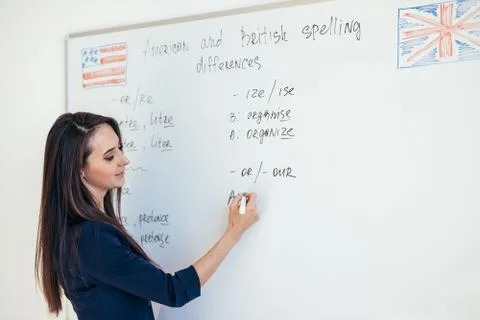 American and British spelling
differences
- er/re
litre
liter
pretence
pretense
- ize / ise
B: organise
A: organize
- or / - our
A